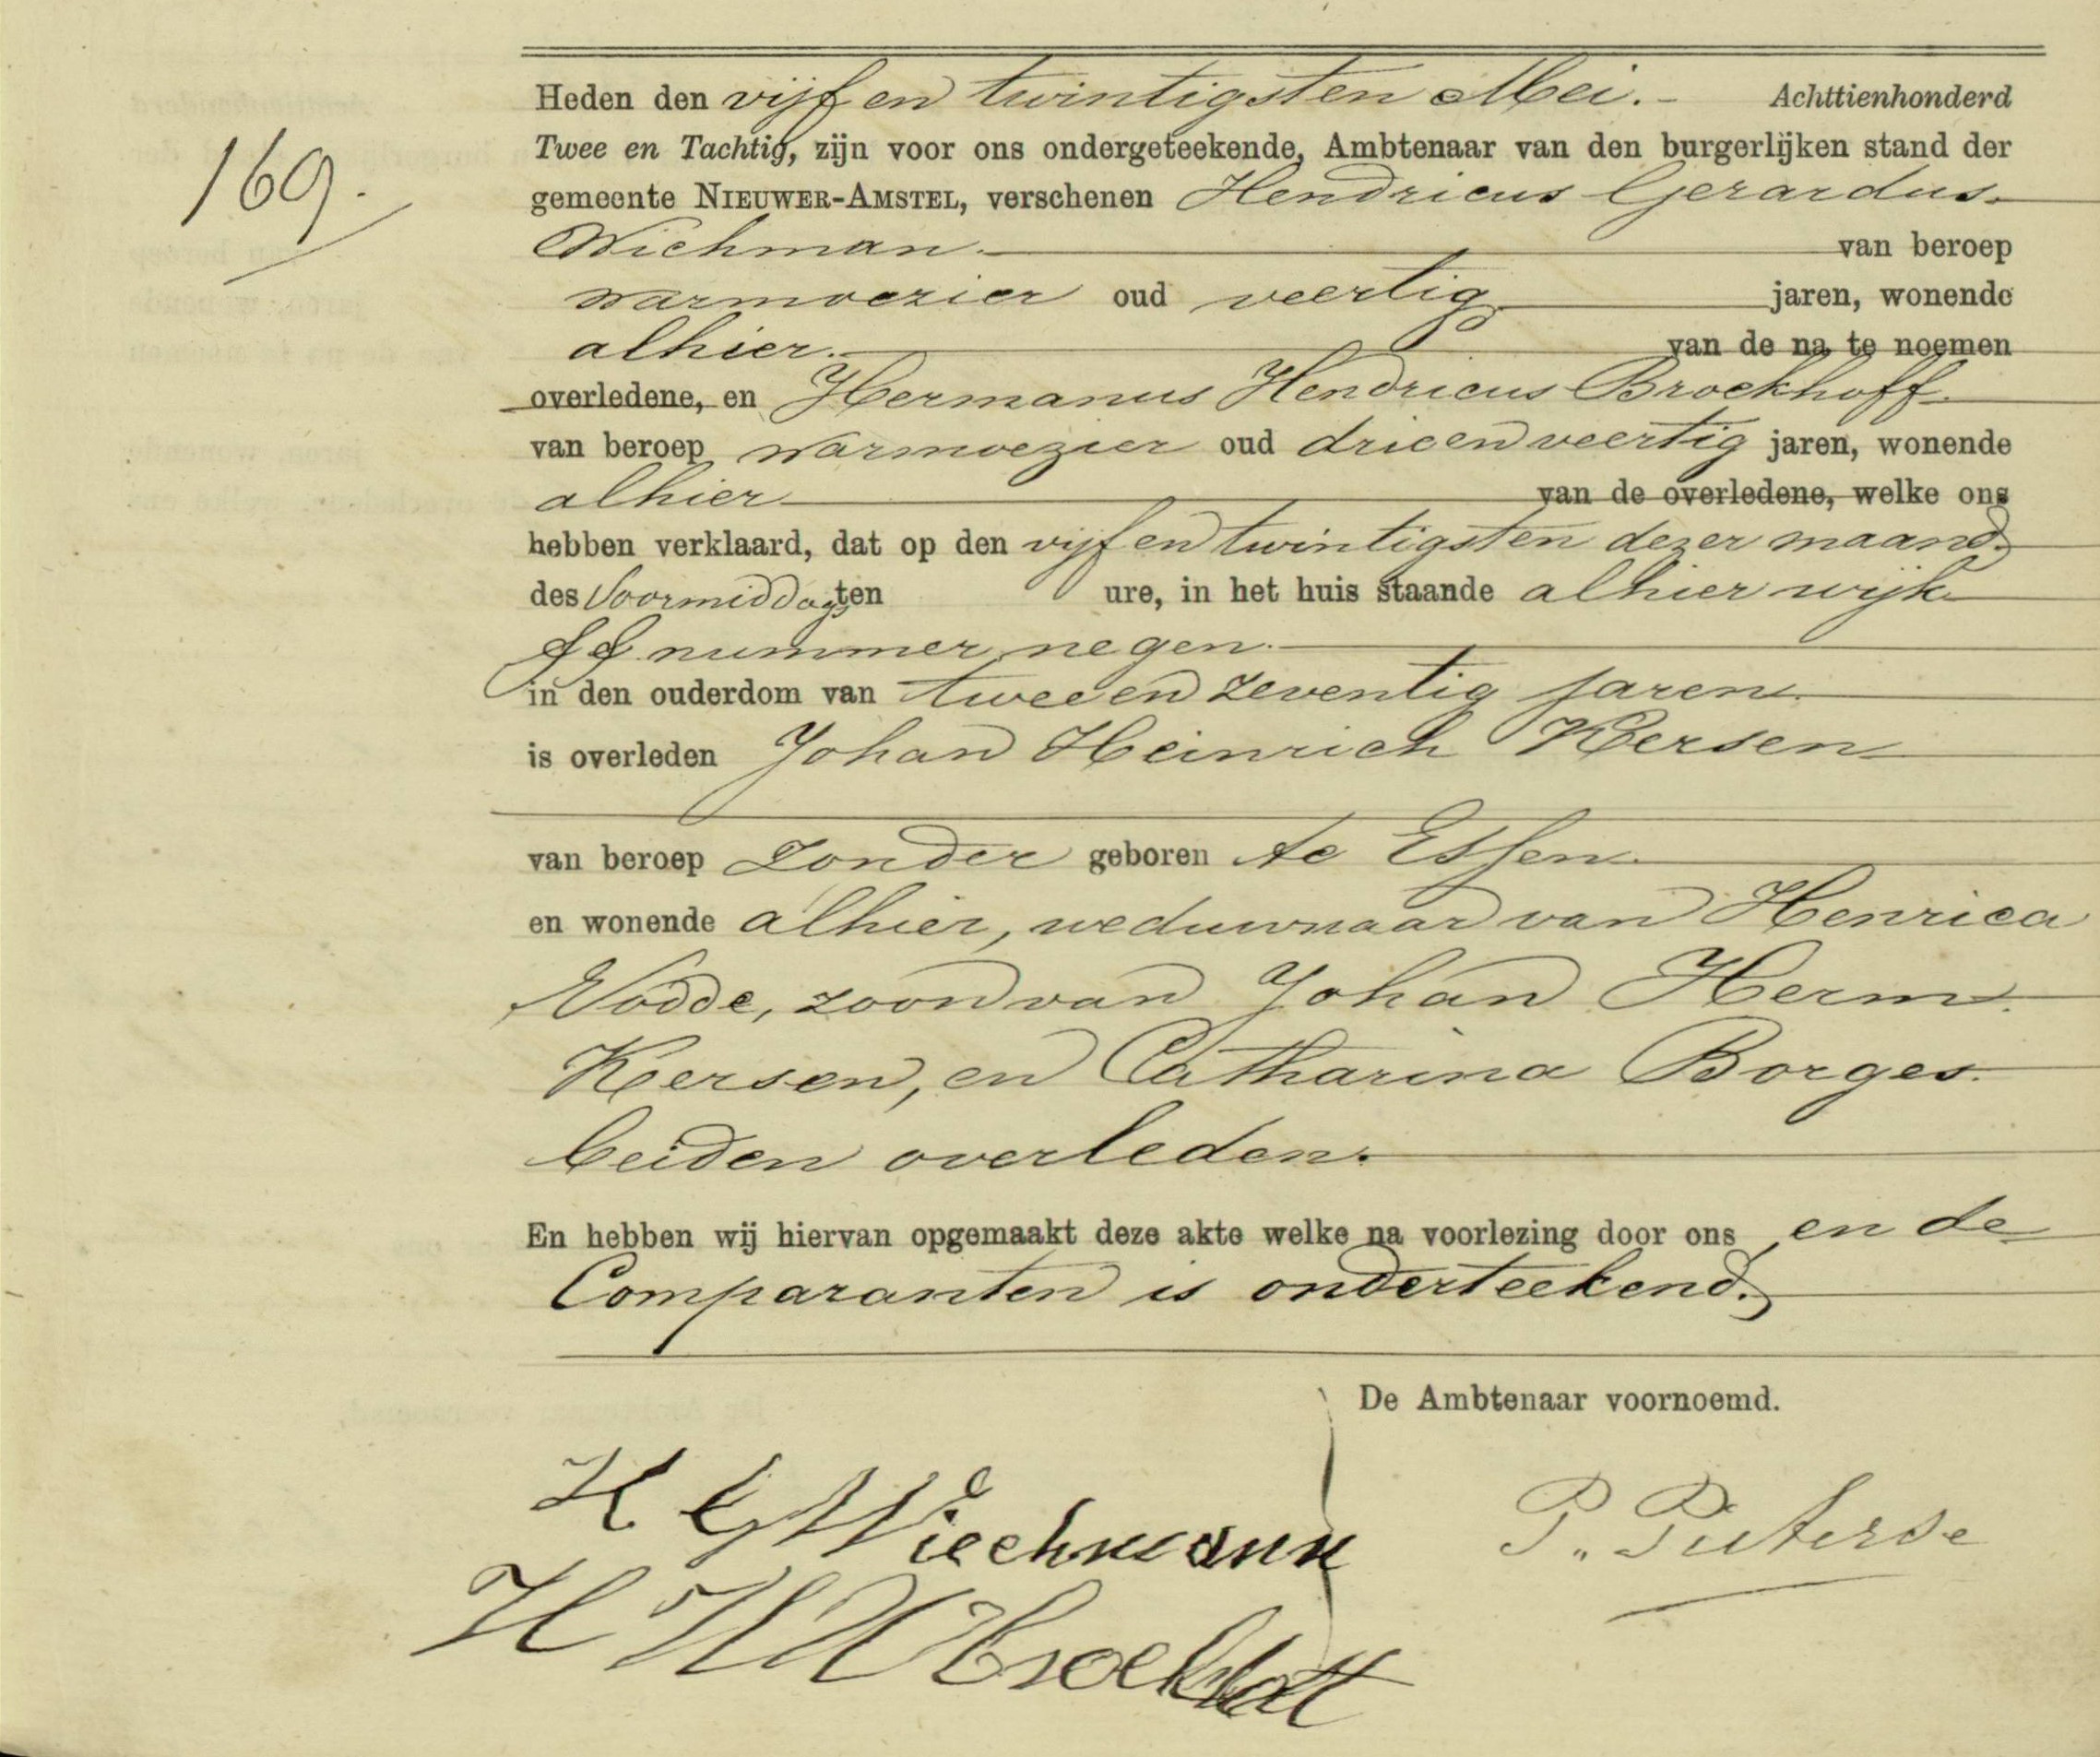 169.
Heden den vijf en twintigsten Mei. Achttienhonderd
Twee en Tachtig, zijn voor ons ondergeteekende, Ambtenaar van den burgerlijken stand der
gemeente NIEUWER-AMSTEL, verschenen Hendricus Gerardus
Wichman. van beroep
warmoezier oud veertig jaren, wonende
alhier. van de na te noemen
overledene, en Hermanus Hendricus Broekhoff
van beroep warmoezier oud drieenveertig jaren, wonende
alhier van de overledene, welke ons
hebben verklaard, dat op den vijf en twintigsten dezer maand
des Voormiddags ten ure, in het huis staande alhier wijk
nummer negen.
in den ouderdom van twee en zeventig jaren.
is overleden Johan Heinrich Kersen
van beroep zonder geboren te Essen
en wonende alhier, weduwnaar van Henrica
Nodde, zoon van Johan Herm.
Kersen, en Catharina Borges.
beiden overleden.
En hebben wij hiervan opgemaakt deze akte welke na voorlezing door ons en de
Comparanten is onderteekend.
De Ambtenaar voornoemd.
H G Wiechmann
P. Pieterse
H H Broekhoff